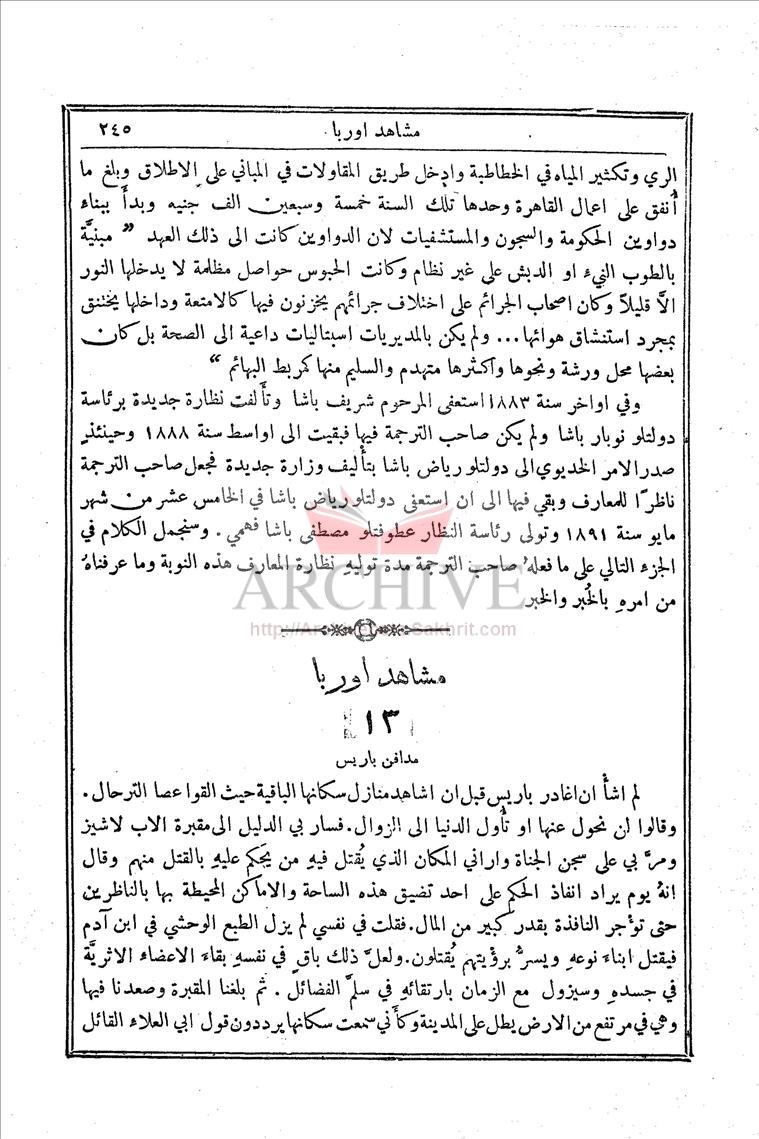 مشاهد اوربا ٢٤٥
الري وتكثير المياه في الخطاطبة وادخل طريق المقاولات في المباني على الاطلاق وبلغ ما
أُنفق على اعمال القاهرة وحدها تلك السنة خمسة وسبعين الف جنيه وبدأ ببناء
دواوين الحكومة والسجون والمستشفيات لان الدواوين كانت الى ذلك العهد " مبنيَّة
بالطوب النيء او الدبش على غير نظام وكانت الحبوس حواصل مظلمة لا يدخلها النور
الاَّ قليلاً وكان اصحاب الجرائم على اختلاف جرائمهم يخزنون فيها كالامتعة وداخلها يختنق
بمجرد استنشاق هوائها... ولم يكن بالمديريات اسبتاليات داعية الى الصحة بل كان
بعضها محل ورشة ونحوها واكثرها متهدم والسليم منها كمربط البهائم "
وفي اواخر سنة ١٨٨٣ استعفى المرحوم شريف باشا وتأَلفت نظارة جديدة برئاسة
دولتلو نوبار باشا ولم يكن صاحب الترجمة فيها فبقيت الى اواسط سنة ١٨٨٨ وحينئذٍ
صدر الامر الخديوي الى دولتلو رياض باشا بتأليف وزارة جديدة فجعل صاحب الترجمة
ناظرًا للمعارف وبقي فيها الى ان استعفى دولتلو رياض باشا في الخامس عشر من شهر
مايو سنة ١٨٩١ وتولى رئاسة النظار عطوفتلو مصطفى باشا فهمي . وسنجمل الكلام في
الجزء التالي على ما فعلهُ صاحب الترجمة مدة توليهِ نظارة المعارف هذه النوبة وما عرفناهُ
من امرهِ بالخُبر والخبر
ARCHIVE
http://Archivebeta.Sakhrit.com
مشاهد اوربا
١٣
مدافن باريس
لم اشأْ ان اغادر باريس قبل ان اشاهد منازل سكانها الباقية حيث القوا عصا الترحال .
وقالوا لن نحول عنها او تأول الدنيا الى الزوال . فسار بي الدليل الى مقبرة الاب لاشيز
ومرَّ بي على سجن الجناة واراني المكان الذي يُقتل فيهِ من يَحكم عليهِ بالقتل منهم وقال
انهُ يوم يراد انفاذ الحكم على احد تضيق هذه الساحة والاماكن المحيطة بها بالناظرين
حتى تؤجر النافذة بقدر كبير من المال. فقلت في نفسي لم يزل الطبع الوحشي في ابن آدم
فيقتل ابناء نوعهِ ويسرُّ برؤيتهم يُقتلون. ولعلَّ ذلك باقٍ في نفسهِ بقاءَ الاعضاء الاثريَّة
في جسدهِ وسيزول مع الزمان بارتقائهِ في سلَّم الفضائل . ثم بلغنا المقبرة وصعدنا فيها
وهي في مرتفع من الارض يطل على المدينة وكأَني سمعت سكانها يرددون قول ابي العلاء القائل